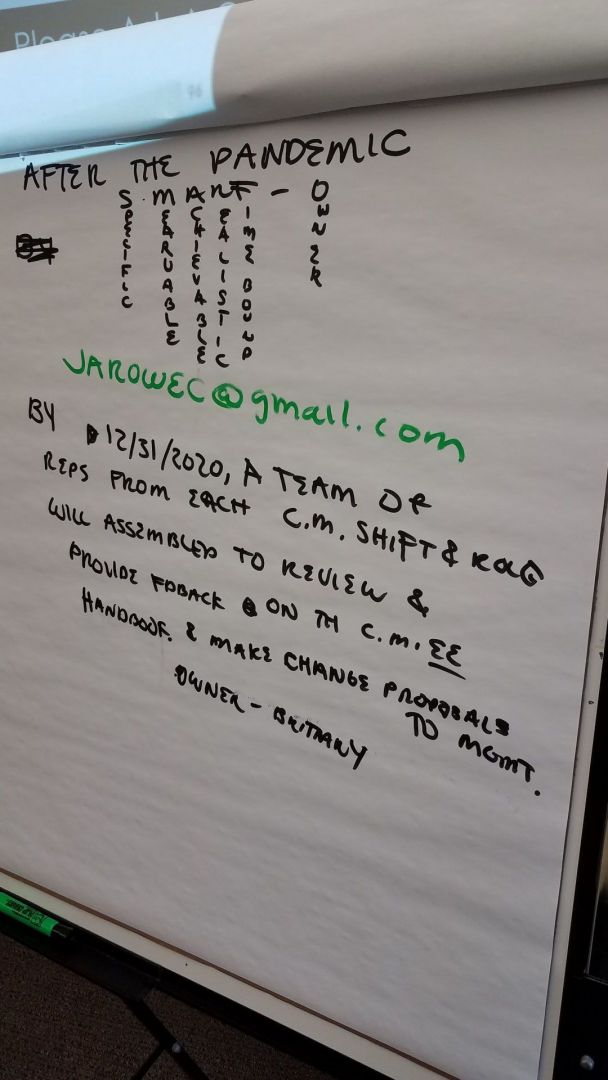 Please
96
AFTER THE PANDEMIC
SMART - OWNER
SPECIFIC
MEARUABLE
ACHIEVABLE
REALISTIC
TIME BOUND
JAROWEC@gmail.com
BY 12/31/2020, A TEAM OF
REPS FROM EACH C.M. SHIFT &
WILL ASSEMBLED TO REVIEW &
PROVIDE FDBACK ON TH C.M. EE
HANDBOOK. & MAKE CHANGE PROPOSALS
TO MGMT.
OWNER - BRITTANY